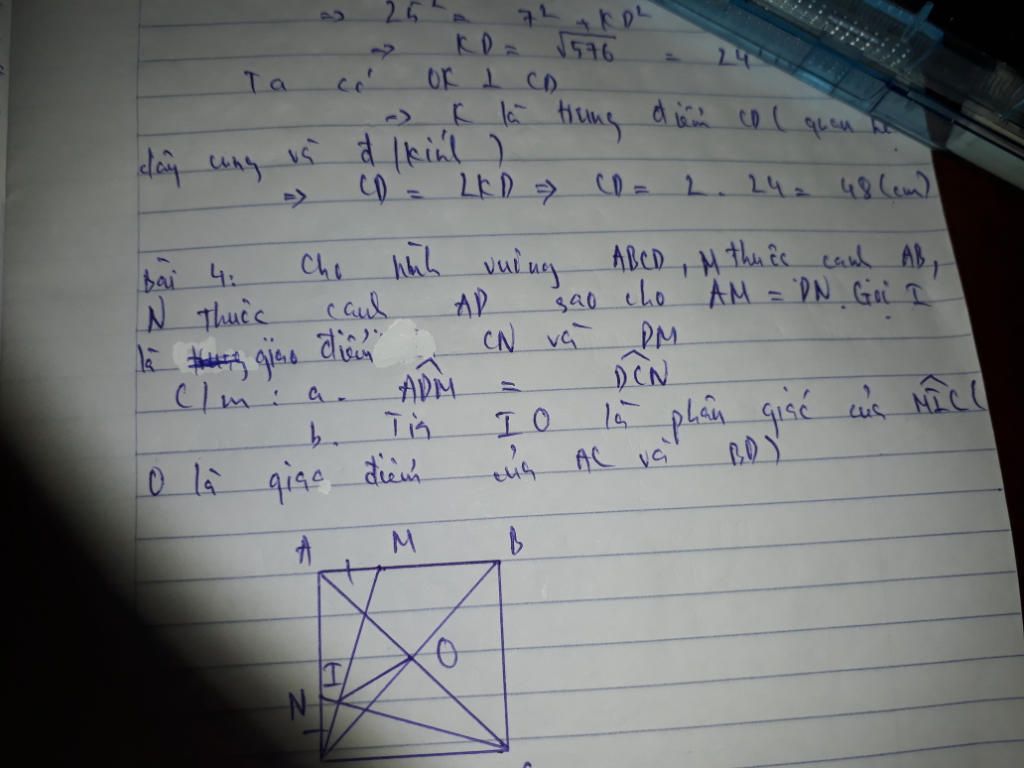 ⇒ 25² = 7² + KD²
⇒ KD = √576 = 24
Ta có OK ⊥ CD
⇒ K là trung điểm CD ( quan hệ
dây cung và đ/kính )
⇒ CD = 2KD ⇒ CD = 2 . 24 = 48 (cm)
Bài 4: Cho hình vuông ABCD, M thuộc cạnh AB,
N thuộc cạnh AD sao cho AM = DN. Gọi I
là giao điểm CN và DM
C/m : a. ADM̂ = DCN̂
b. Tia IO là phân giác của MIĈ (
O là giao điểm của AC và BD)
A M B
O
I
N